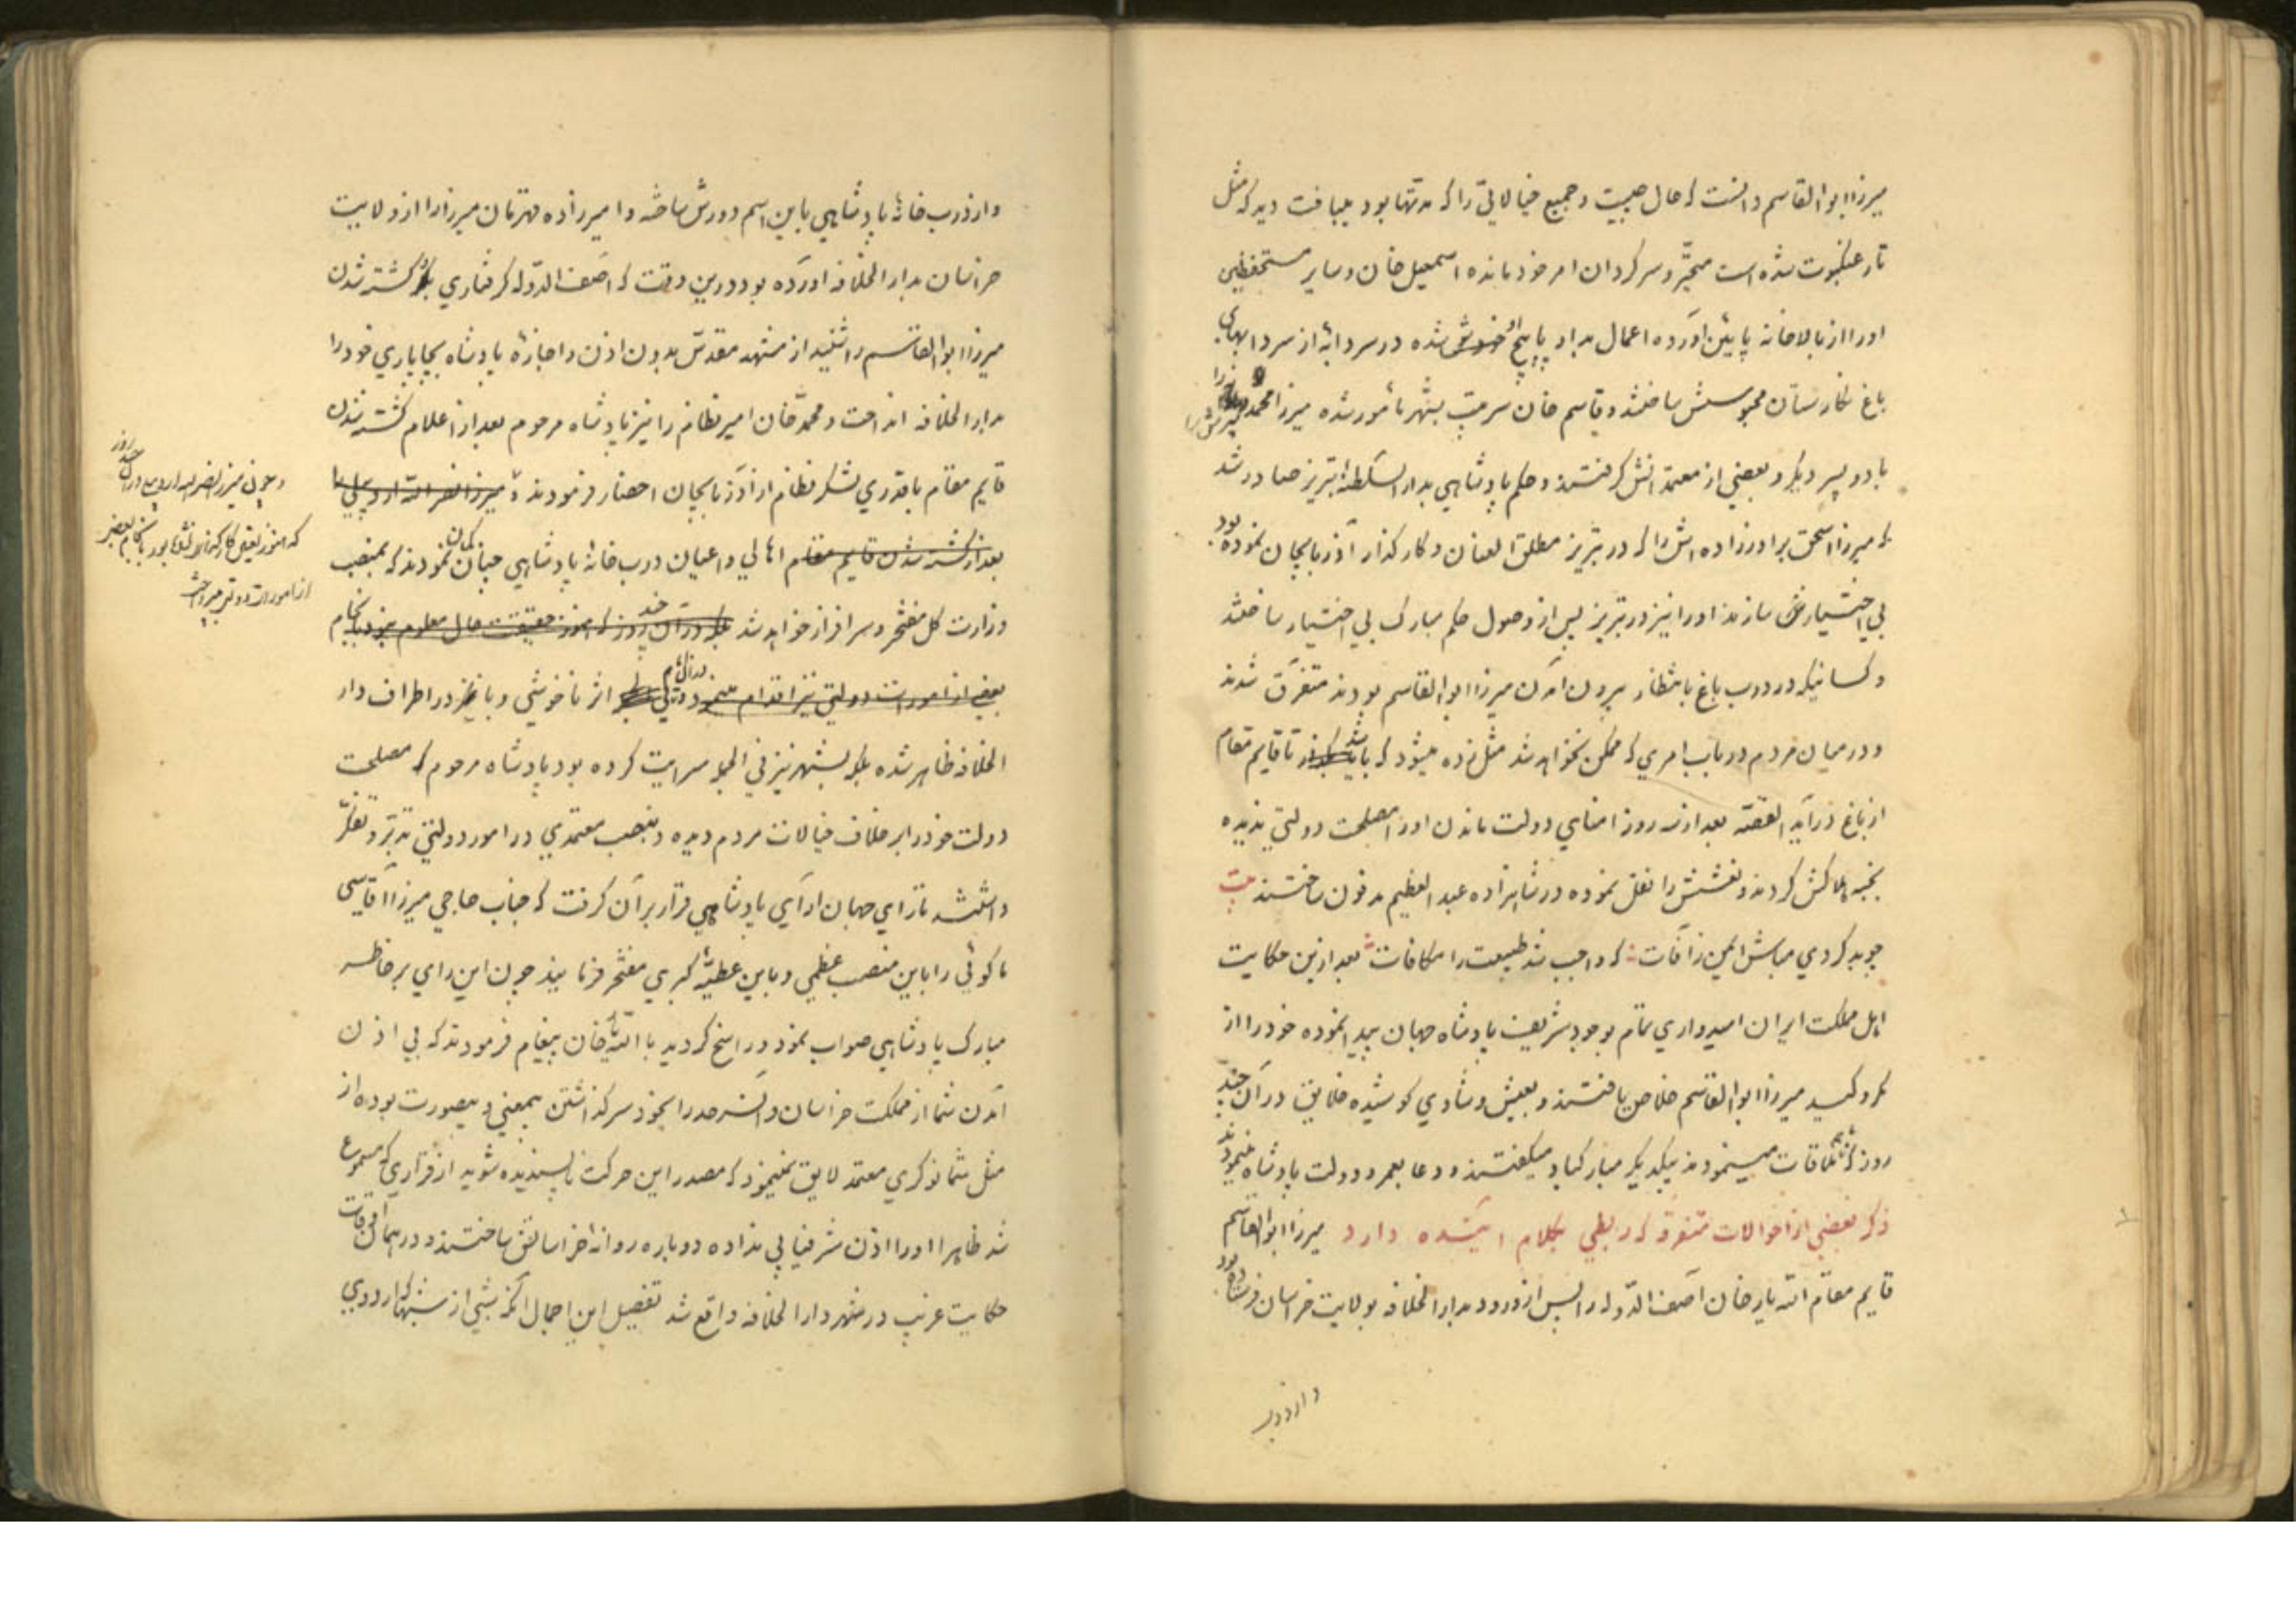 میرزا ابوالقاسم دانست که حال چیست و جمیع خیالاتی را که مدتها بود میبافت دید که مثل
تار عنکبوت شده است متحیّر و سرگردان امر خود مانده اسمعیل خان و سایر مستحفظین
او را از بالاخانه پایین آورده اعمال بد او پاپیچ او شده در سردابهٔ از سردابهای
باغ نگارستان محبوسش ساختند و قاسم خان سرتیپ بشهر مأمور شده میرزا محمد
با دو پسر دیگر و بعضی از معتمدانش گرفتند و حکم پادشاهی بدار السلطنه تبریز صادر شد
که میرزا اسحق برادرزاده‌اش را که در تبریز مطلق العنان و کارگذار آذربایجان نموده بود
بی اختیارش سازند او را نیز در تبریز پس از وصول حکم مبارک بی اختیار ساختند
و کسانیکه در درب باغ بانتظار بیرون آمدن میرزا ابوالقاسم بودند متفرّق شدند
و در میان مردم در باب امری که ممکن نخواهد شد مثل زده میشود که باشد تا قایم مقام
از باغ درآید القصّه بعد از سه روز امنای دولت ماندن او را مصلحت دولتی ندیده
بخبه هلاکش کردند و نعشش را نقل نموده در شاهزاده عبد العظیم مدفون ساختند بیت
چو بد کردی مباش ایمن ز آفات که واجب شد طبیعت را مکافات بعد ازین حکایت
اهل مملکت ایران امیدواری تمام بوجود شریف پادشاه جهان پیدا نموده خود را از
مکر و کید میرزا ابوالقاسم خلاص یافتند و بعیش و شادی کوشیده خلایق در آن چند
روز که بهم ملاقات مینمودند بیکدیگر مبارکباد میگفتند و دعا بعمر و دولت پادشاه مینمودند
ذکر بعضی از احوالات متفرقه که ربطی بکلام آینده دارد میرزا ابوالقاسم
قایم مقام الله یار خان آصف الدّوله را پس از ورود بدار الخلافه بولایت خراسان فرستاده بود
و از درب
و از درب خانهٔ پادشاهی باین اسم دورش ساخته و امیرزاده قهرمان میرزا را از ولایت
خراسان بدار الخلافه آورده بود درین وقت که آصف الدّوله گرفتاری بلکه کشته شدن
میرزا ابوالقاسم را شنید از مشهد مقدّس بدون اذن و اجازهٔ پادشاه بچاپاری خود را
بدار الخلافه انداخت و محمد خان امیر نظام را نیز پادشاه مرحوم بعد از اعلام کشته شدن
قایم مقام با قدری لشکر نظام از آذربایجان احضار فرمودند و میرزا نصر الله اردبیلی
بعد از کشته شدن قایم مقام اهالی و اعیان درب خانهٔ پادشاهی چنان گمان نمودند که بمنصب
وزارت کل مفتخر و سرافراز خواهد شد بلکه در آن چند روز که هنوز حقیقت حال معلوم نبود بانجام
بعضی از امورات دولتی نیز اقدام مینمود در آن ایام اثر ناخوشی وبا نیز در اطراف دار
الخلافه ظاهر شده بلکه بشهر نیز فی الجمله سرایت کرده بود پادشاه مرحوم که مصلحت
دولت خود را بر خلاف خیالات مردم دیده و بنصب معتمدی در امور دولتی تدبّر و تفکّر
داشتند تا رای جهان آرای پادشاهی قرار بر آن گرفت که جناب حاجی میرزا آقاسی
ماکوئی را باین منصب عظمی و باین عطیّهٔ کبری مفتخر فرمایند چون این رای بر خاطر
مبارک پادشاهی صواب نمود و راسخ گردید با الله یار خان پیغام فرمودند که بی اذن
آمدن شما از مملکت خراسان و آن سرحد را بخود سر گذاشتن بیمعنی و بیصورت بوده از
مثل شما نوکری معتمد لایق نمینمود که مصدر این حرکت ناپسندیده شوید از قراری که مسموع
شد ظاهرا او را اذن شرفیابی نداده دوباره روانهٔ خراسانش ساختند و در همان اوقات
حکایت غریب در شهر دار الخلافه واقع شد تفصیل این اجمال آنکه شبی از شبها که اردوی
و چون میرزا نصر الله اردبیلی در آن چند روز
که هنوز تعیین کارگذار نشده بود بانجام بعضی
از امورات دولتی میپرداخت